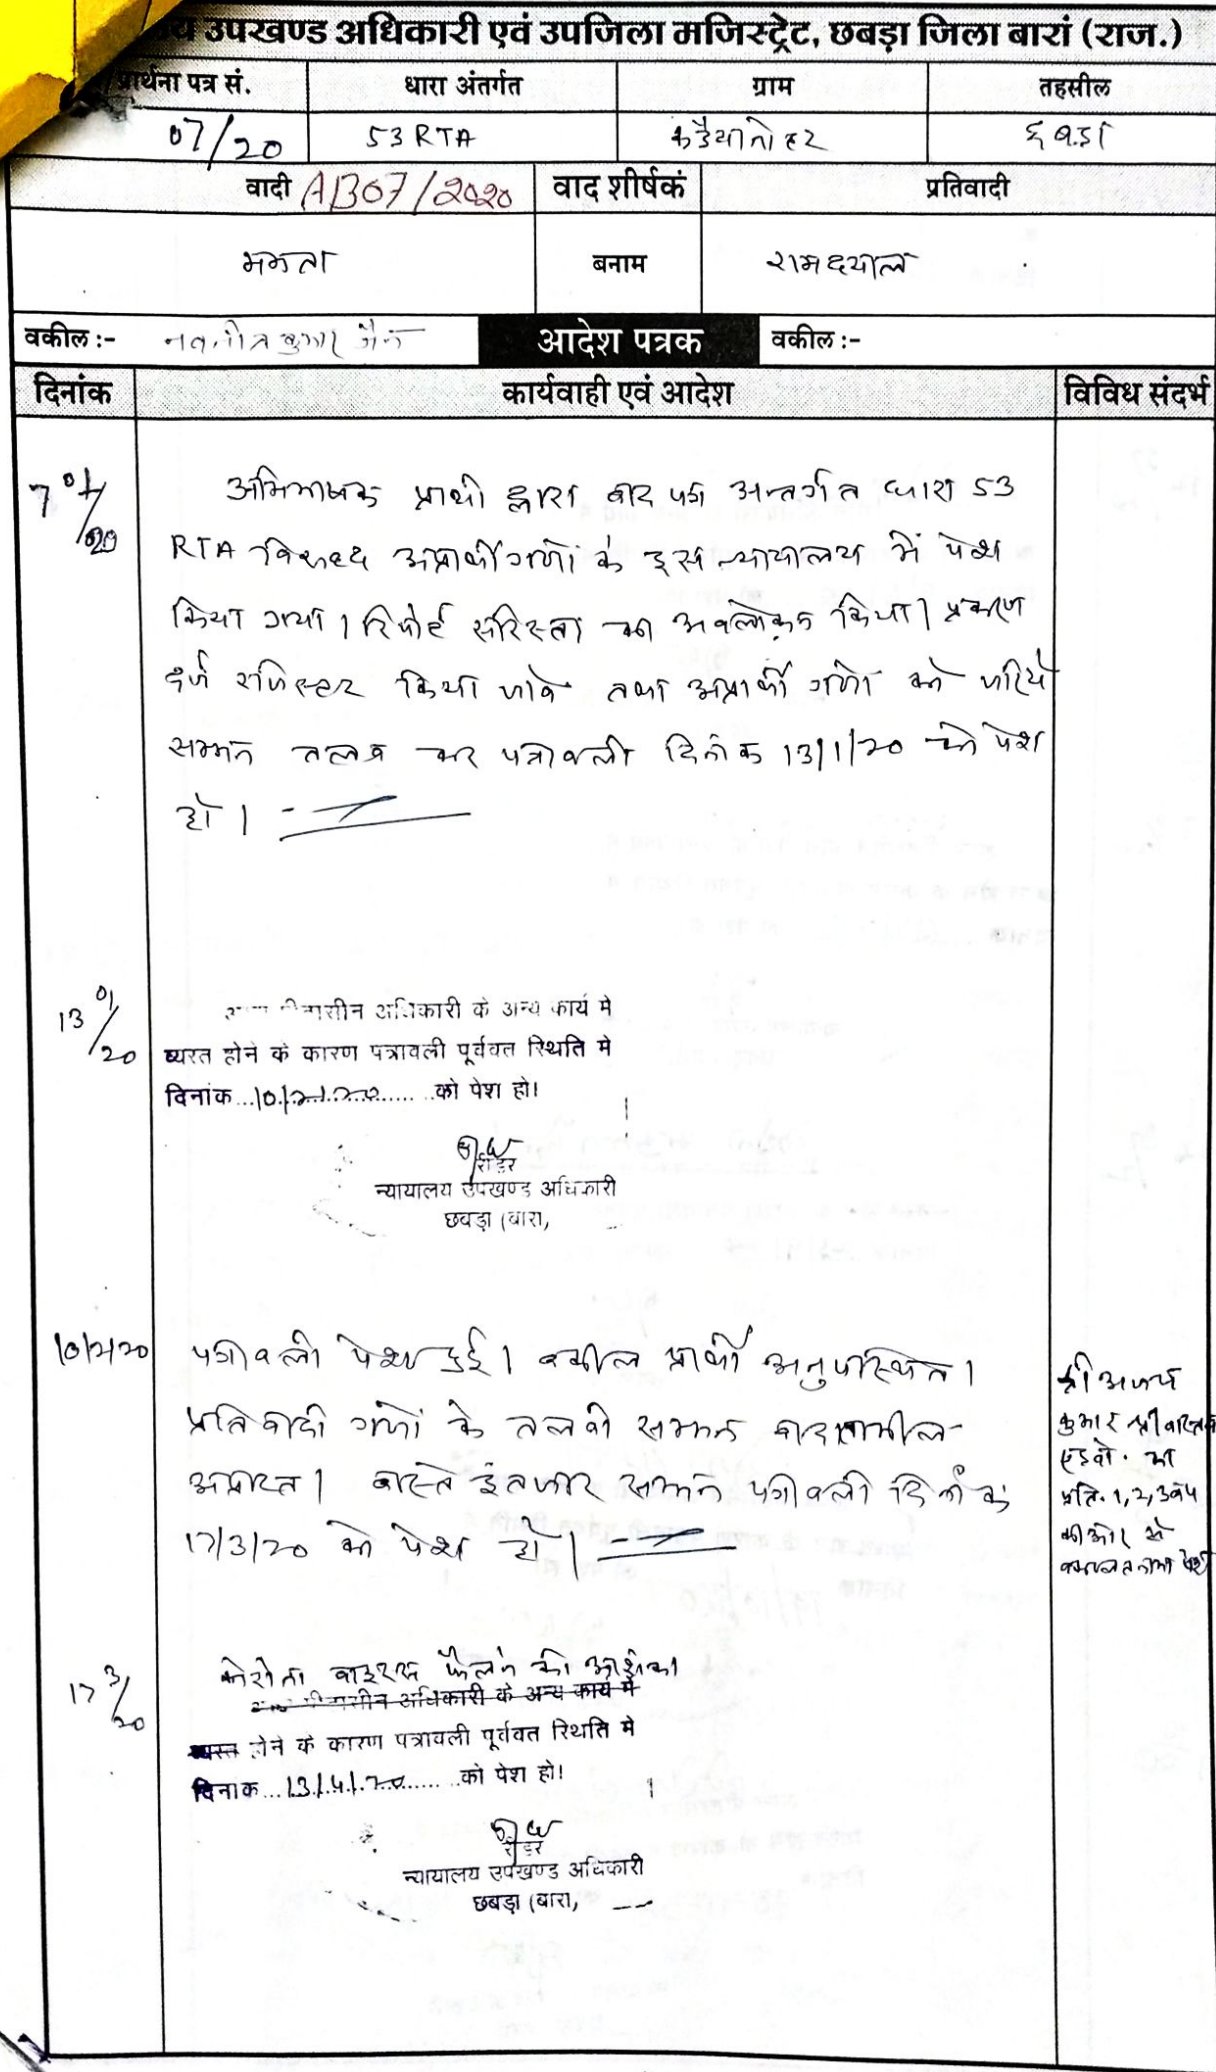 उपखण्ड अधिकारी एवं उपजिला मजिस्ट्रेट, छबड़ा जिला बारां (राज.)
प्रार्थना पत्र सं. धारा अंतर्गत ग्राम तहसील
07/20 53 RTA छबड़ा
वादी AB07/2020 वाद शीर्षक प्रतिवादी
ममता बनाम रामदयाल
वकील :- नवनीत कुमार जैन आदेश पत्रक वकील :-
दिनांक कार्यवाही एवं आदेश विविध संदर्भ
7 01/20 अभिभाषक प्रार्थी द्वारा वाद पत्र अन्तर्गत धारा 53
RTA विरुद्ध अप्रार्थीगणों के इस न्यायालय में पेश
किया गया। रिपोर्ट सरिस्ता का अवलोकन किया। प्रकरण
दर्ज रजिस्टर किया जावे तथा अप्रार्थी गणों को जरिये
सम्मन तलब कर पत्रावली दिनांक 13/1/20 को पेश
हो।
13 01/20 अधिकारी के अन्य कार्य मे
व्यस्त होने के कारण पत्रावली पूर्ववत स्थिति मे
दिनांक...10/2/20...... को पेश हो।
रीडर
न्यायालय उपखण्ड अधिकारी
छबड़ा (बारा,
10/2/20 पत्रावली पेश हुई। वकील प्रार्थी अनुपस्थित।
प्रतिवादी गणों के तलबी सम्मन बादतामील
अप्राप्त। वास्ते इंतजार सम्मन पत्रावली दिनांक
17/3/20 को पेश हो।
श्री अजय
कुमार श्रीवास्तव
एडवो. का
प्रति. 1,2,3व4
की ओर से
वकालतनामा पेश
17 3/20 कोरोना वाइरस फैलने की आशंका
अधिकारी के अन्य कार्य मे
व्यस्त होने के कारण पत्रावली पूर्ववत स्थिति मे
दिनाक...13/4/20...... को पेश हो।
रीडर
न्यायालय उपखण्ड अधिकारी
छबड़ा (बारा,